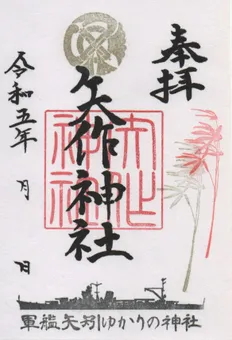 奉拝
矢作神社
令和五年 月 日
軍艦矢矧ゆかりの神社